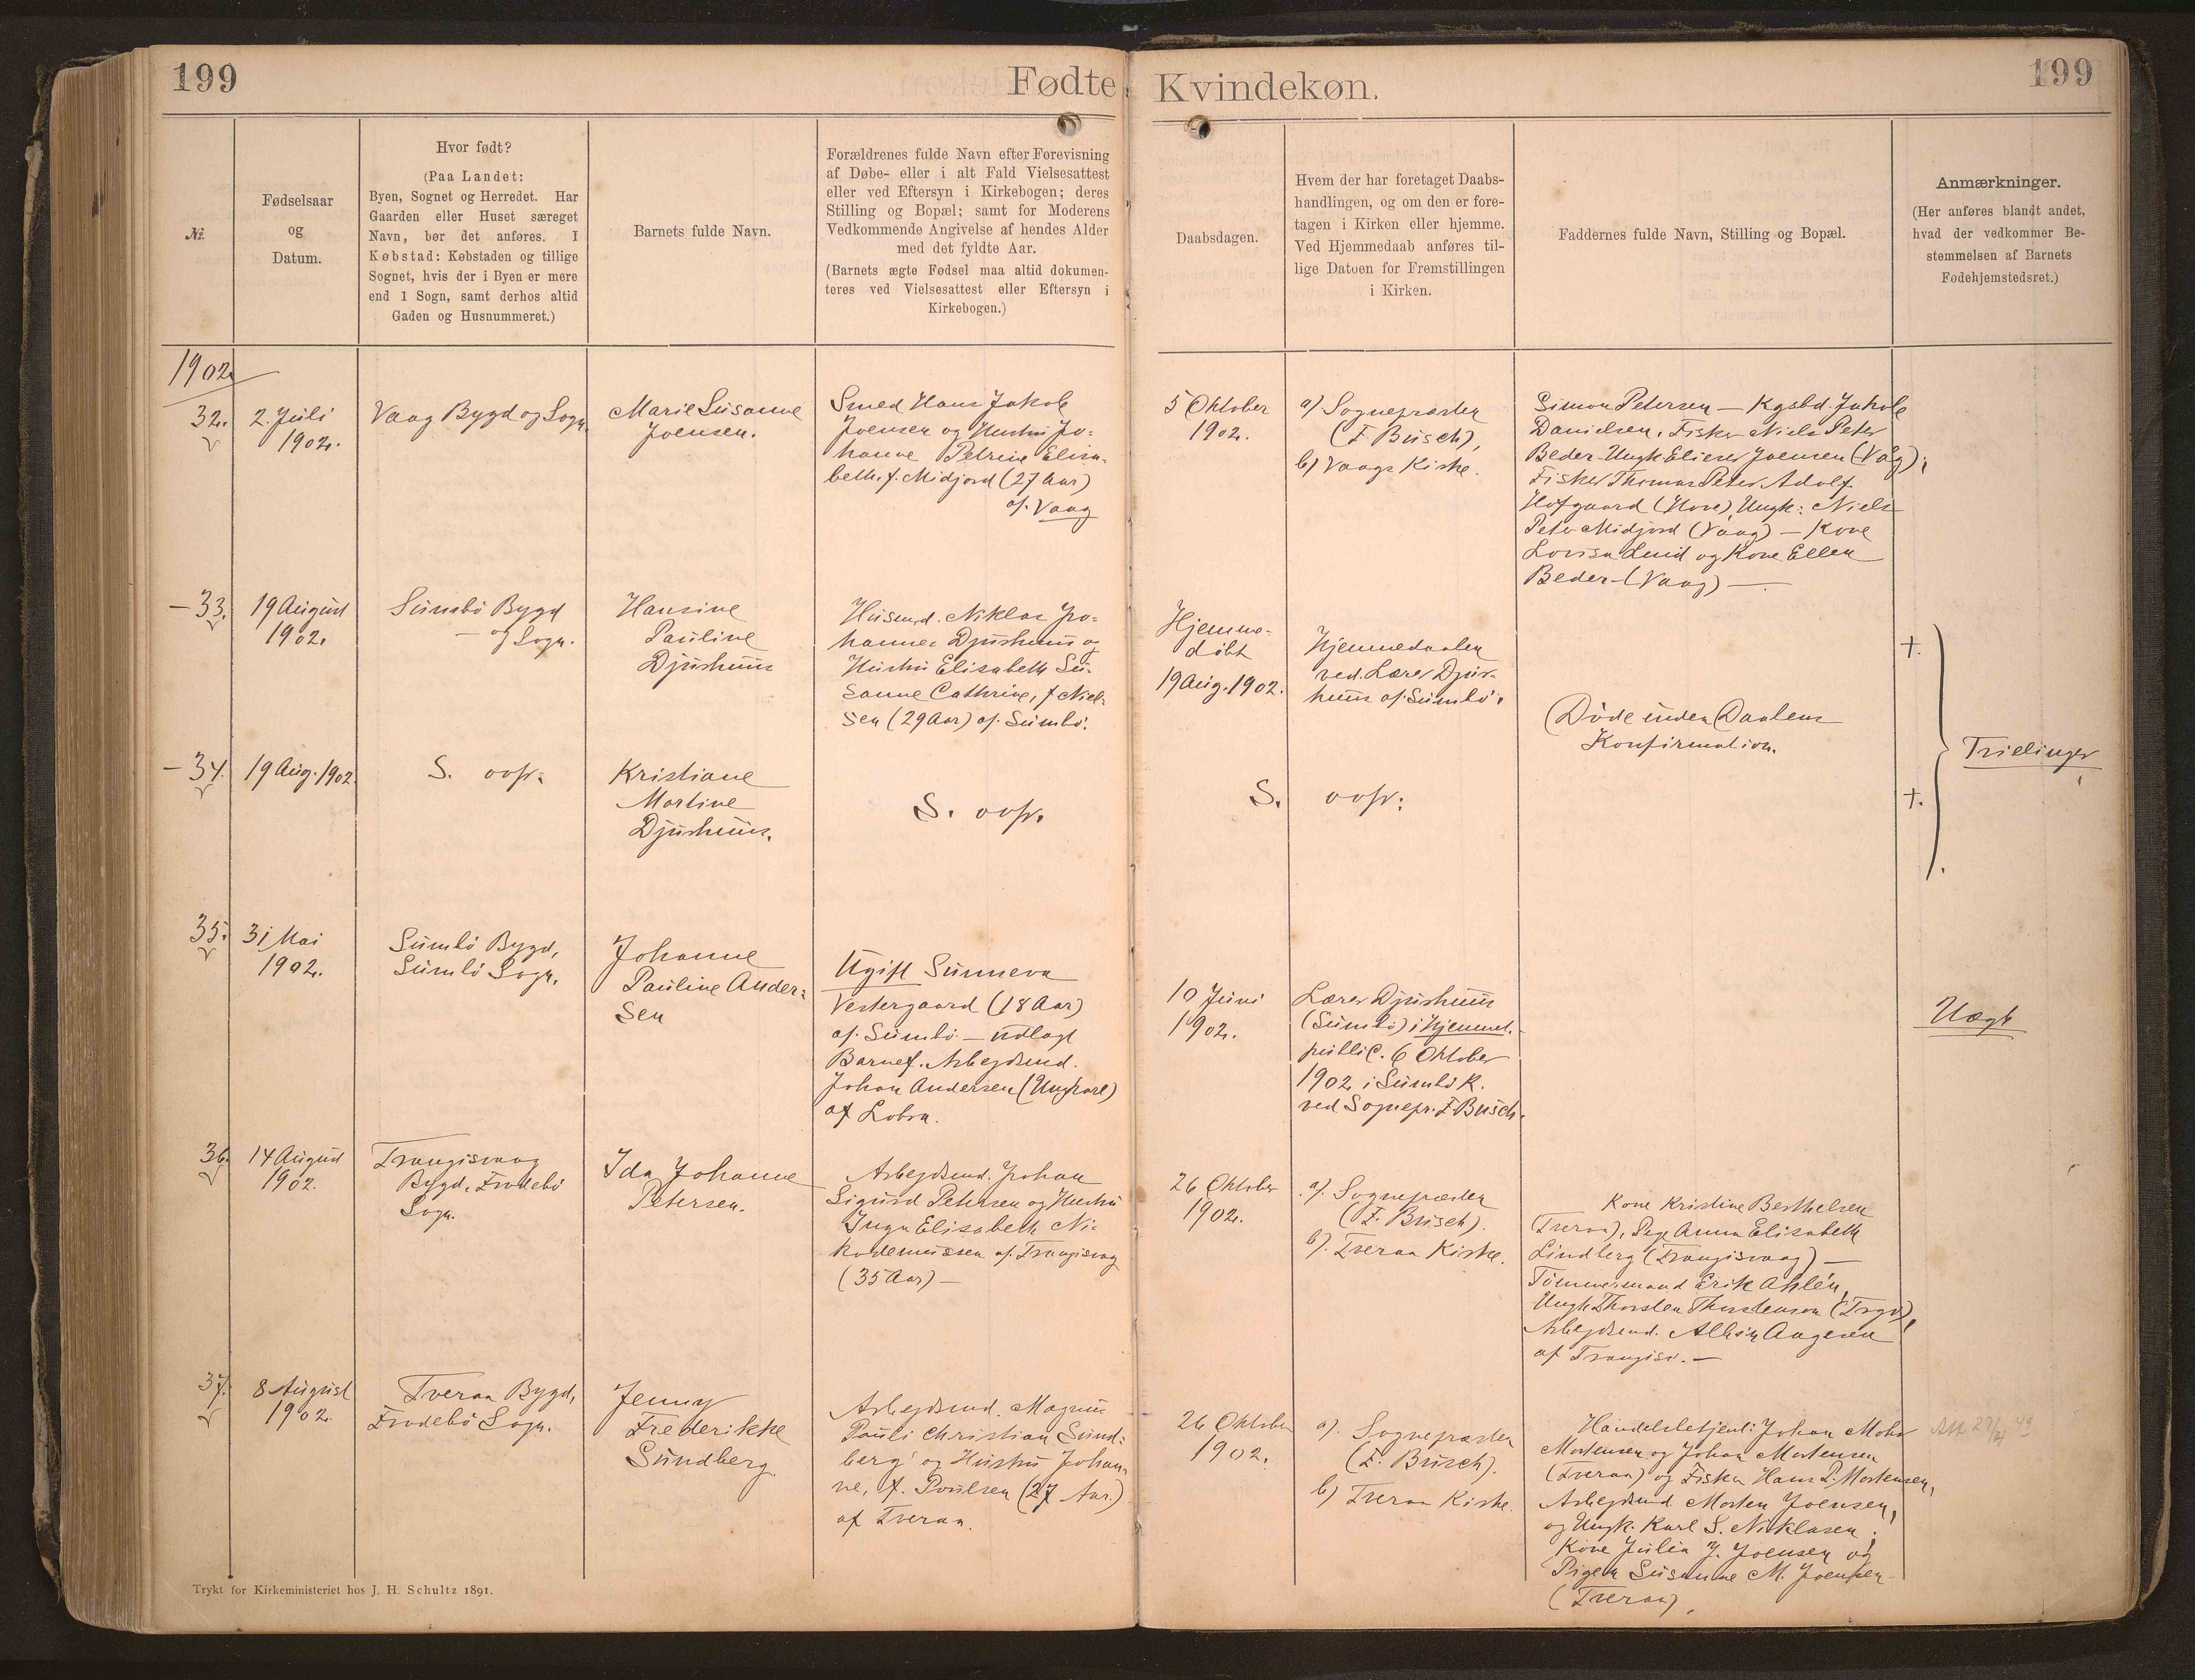 199
Fødte
Kvindekøn.
199
№.
Fødselsaar
og
Datum.
Hvor født?
(Paa Landet:
Byen, Sognet og Herredet. Har
Gaarden eller Huset særeget
Navn, bør det anføres. I
Købstad: Købstaden og tillige
Sognet, hvis der i Byen er mere
end 1 Sogn, samt derhos altid
Gaden og Husnummeret.)
Barnets fulde Navn.
Forældrenes fulde Navn efter Forevisning
af Døbe- eller i alt Fald Vielsesattest
eller ved Eftersyn i Kirkebogen; deres
Stilling og Bopæl; samt for Moderens
Vedkommende Angivelse af hendes Alder
med det fyldte Aar.
(Barnets ægte Fødsel maa altid dokumen-
teres ved Vielsesattest eller Eftersyn i
Kirkebogen.)
Daabsdagen.
Hvem der har foretaget Daabs-
handlingen, og om den er fore-
tagen i Kirken eller hjemme.
Ved Hjemmedaab anføres til-
lige Datoen for Fremstillingen
i Kirken.
Faddernes fulde Navn, Stilling og Bopæl.
Anmærkninger.
(Her anføres blandt andet,
hvad der vedkommer Be-
stemmelsen af Barnets
Fødehjemstedsret.)
1902.
32.
2. Juli
1902.
Vaag Bygd og Sogn.
Marie Susanne
Joensen.
Smed Hans Jakob
Joensen og Hustru Jo-
hanne Petrine Elisa-
beth, f. Midjord (27 Aar)
af Vaag
5 Oktober
1902.
a) Sognepræsten
(F. Busch),
b) Vaags Kirke.
Simon Petersen — Kgsbd. Jakob
Danielsen, Fisker Niels Peter
Beder - Ungk. Elieser Joensen (Våg),
Fisker Thomas Peter Adolf
Hofgaard (Hove), Ungk: Niels
Peter Midjord (Vaag) — Kone
Lovisa Lund og Kone Ellen
Beder - (Vaag) —
— 33.
19 August
1902.
Sumbö Bygd
— og Sogn.
Hansine
Pauline
Djurhuus
Husmd. Niklas Jo-
hannes Djurhuus og
Hustru Elisabeth Su-
sanne Cathrine, f. Niel-
sen (29 Aar) af Sumbö.
Hjemme-
døbt
19 Aug. 1902.
Hjemmedaaben
ved Lærer Djur-
huus af Sumbö.
(Døde inden Daabens
Konfirmation.
†.
Trielinger
— 34.
19 Aug. 1902.
S. ovfr.
Kristiane
Martine
Djurhuus.
S. ovfr.
S. ovfr.
†.
35.
31 Mai
1902.
Sumbö Bygd,
Sumbö Sogn.
Johanne
Pauline Ander-
sen
Ugift Sunneva
Vestergaard (18 Aar)
af Sumbö — udlagt
Barnef. Arbejdsmd.
Johan Andersen (Ungkarl)
af Lobra.
10 Juni
1902.
Lærer Djurhuus
(Sumbö) i Hjemmet.
public. 6 Oktober
1902 i Sumbö K.
ved Sognepr. F. Busch.
Uægte
36.
14 August
1902.
Trangisvaag
Bygd, Frodebö
Sogn.
Ida Johanne
Petersen.
Arbejdsmd. Johan
Sigurd Petersen og Hustru
Inga Elisabeth Ni-
kodemussen af Trangisvaag
(35 Aar) —
26 Oktober
1902.
a). Sognepræsten
(F. Busch).
b). Tveraa Kirke.
Kone Kristine Berthelsen
(Tveraa), Pige Anna Elisabeth
Lindberg (Trangisvaag) —
Tømmermand Erik Ahlén,
Ungk. Thorsten Thorstensen (Trgv),
Arbejdsmd. Albin
af Trangisv. —
37.
8 August
1902.
Tveraa Bygd,
Frodebö Sogn.
Jenny
Frederikke
Sundberg
Arbejdsmd. Magnus
Pouli Christian Sund-
berg og Hustru Johan-
ne, f. Poulsen (27 Aar.)
af Tveraa.
26 Oktober
1902.
a). Sognepræsten
(F. Busch).
b) Tveraa Kirke.
Handelsbetjent: Johan Mohr
Mortensen og Johan Mortensen
(Tveraa) og Fisker Hans P. Mortensen,
Arbejdsmd Morten Joensen,
og Ungk. Karl S. Niklasen;
Kone Julia J. Joensen og
Pigen Susanne M. Joensen
(Tveraa),
Trykt for Kirkeministeriet hos J. H. Schultz 1891.